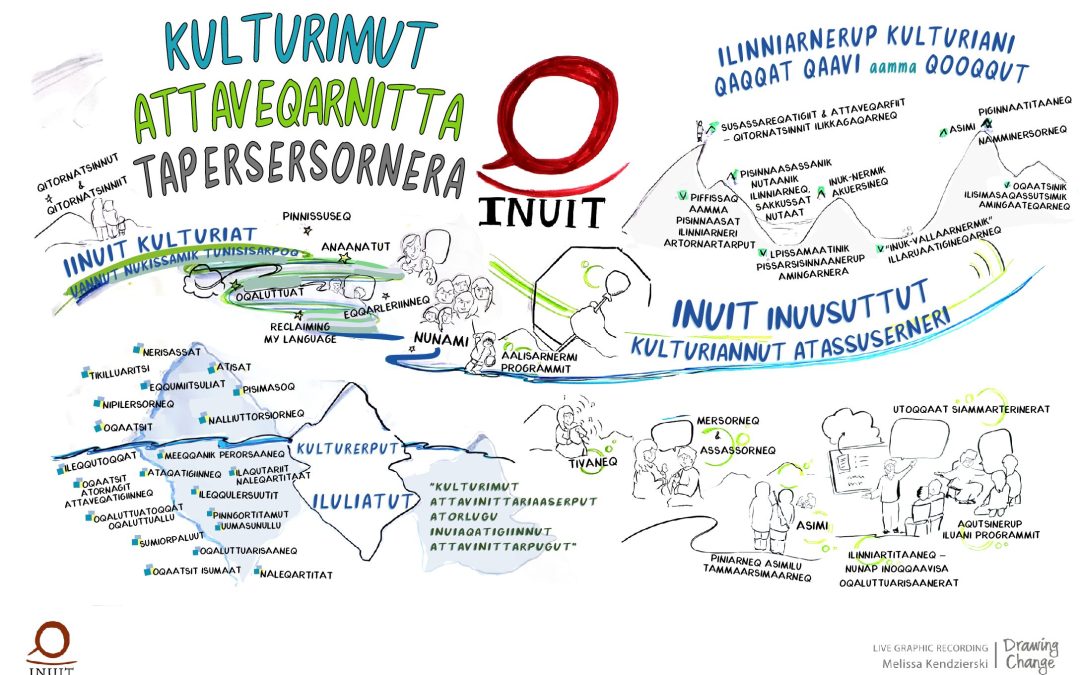 KULTURIMUT
ATTAVEQARNITTA
TAPERSERSORNERA
INUIT
ILINNIARNERUP KULTURIANI
QAQQAT QAAVI aamma QOOQQUT
SUSASSAREQATIGIIT & ATTAVEQARFIIT
– QITORNATSINNIT ILIKKAGAQARNEQ
PIGINNAATITAANEQ
ASIMI
NAMMINERSORNEQ
PISINNAASASSANIK
NUTAANIK
ILINNIARNEQ,
SAKKUSSAT
NUTAAT
INUK-NERMIK
AKUERSINEQ
PIFFISSAQ
AAMMA
PISINNAASAT
ILINNIARNERI
ARTORNARTARPUT
OQAATSINIK
ILISIMASAQASSUTSIMIK
AMINGAATEQARNEQ
LPISSAMAATINIK
PISSARSISINNAANERUP
AMINGARNERA
"INUK-VALLAARNERMIK"
ILLARUAATIGINEQARNEQ
QITORNATSINNUT
&
QITORNATSINNIIT
IINUIT KULTURIAT
UANNUT NUKISSAMIK TUNISISARPOQ
PINNISSUSEQ
ANAANATUT
OQALUTTUAT
EQQARLERIINNEQ
RECLAIMING
MY LANGUAGE
NUNAMI
AALISARNERMI
PROGRAMMIT
INUIT INUUSUTTUT
KULTURIANNUT ATASSUSERNERI
NERISASSAT
TIKILLUARITSI
ATISAT
EQQUMIITSULIAT
PISIMASOQ
NIPILERSORNEQ
NALLIUTTORSIORNEQ
OQAATSIT
KULTURERPUT
ILULIATUT
ILEQQUTOQQAT
MEEQQANIK PERORSAANEQ
ATAQATIGIINNEQ
ILAQUTARIIT
NALEQARTITAAT
OQAATSIT
ATORNAGIT
ATTAVEQATIGIINNEQ
ILEQQULERSUUTIT
OQALUTTUATOQQAT
OQALUTTUALLU
PINNGORTITAMUT
UUMASUNULLU
SUMIORPALUUT
OQALUTTUARISAANEQ
OQAATSIT ISUMAAT
NALEQARTITAT
"KULTURIMUT
ATTAVINITTARIAASERPUT
ATORLUGU
INUIAQATIGIINNUT
ATTAVINITTARPUGUT"
TIVANEQ
MERSORNEQ
&
ASSASSORNEQ
UTOQQAAT SIAMMARTERINERAT
ASIMI
PINIARNEQ ASIMILU
TAMMAARSIMAARNEQ
AQUTSINERUP
ILUANI PROGRAMMIT
ILINNIARTITAANEQ –
NUNAP INOQQAAVISA
OQALUTTUARISAANERAT
INUIT
LIVE GRAPHIC RECORDING
Melissa Kendzierski
Drawing
Change